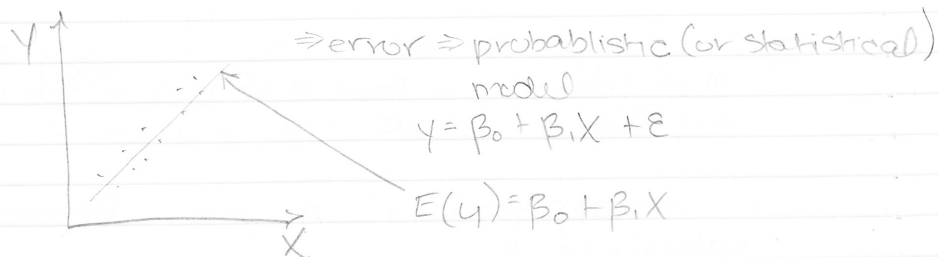 Y
⇒ error ⇒ probablistic (or statistical)
model
y = β₀ + β₁X + ε
E(y) = β₀ + β₁X
X